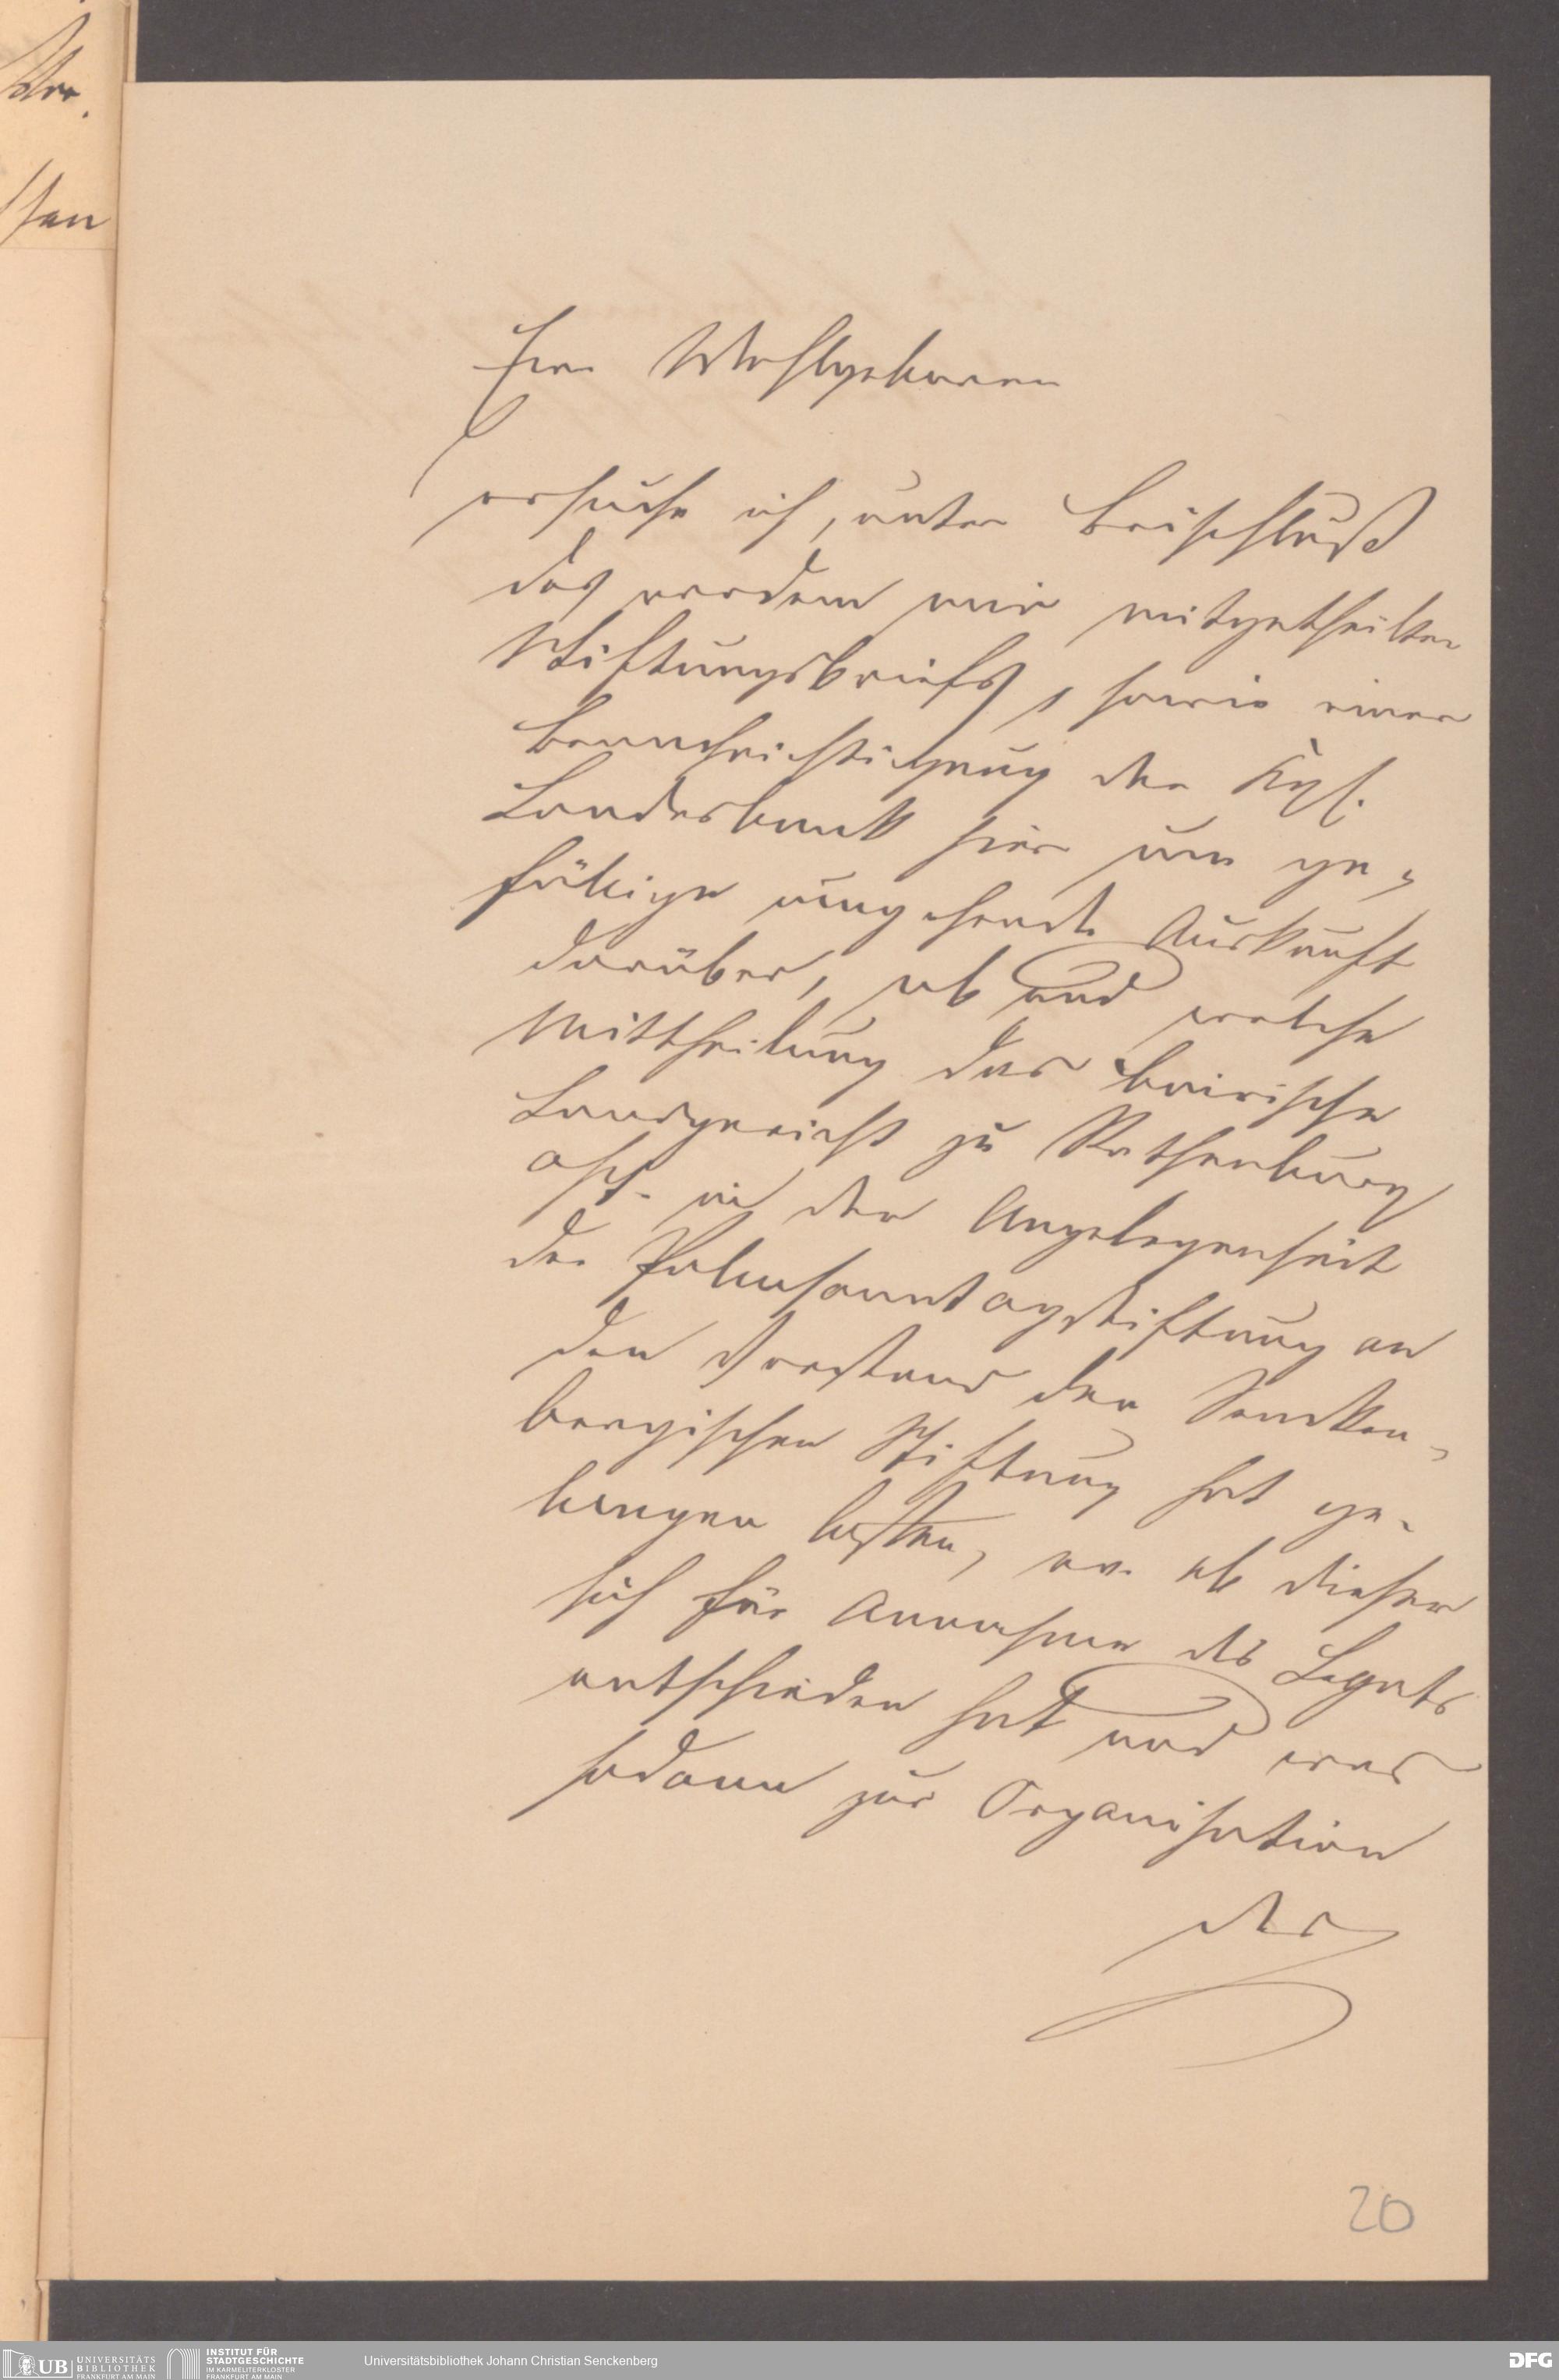 Ew. Wohlgeboren
ersuche ich, unter Beischluß
des vordem mir mitgetheilten
Stiftungsbriefs, sowie einer
Benachrichtigung der Kgl.
Landesbank hier um ge-
fällige umgehende Auskunft
darüber, ob und welche
Mittheilung das bairische
Landgericht zu Rothenburg
a/T. in der Angelegenheit
der Palmsonntagstiftung an
den Vorstand der Sencken-
bergischen Stiftung hat ge-
langen lassen, ev. ob dieser
sich für Annahme des Legats
entschieden hat und was
sodann zur Organisation
der
20
UB UNIVERSITÄTS
BIBLIOTHEK
FRANKFURT AM MAIN
INSTITUT FÜR
STADTGESCHICHTE
IM KARMELITERKLOSTER
FRANKFURT AM MAIN
Universitätsbibliothek Johann Christian Senckenberg
DFG